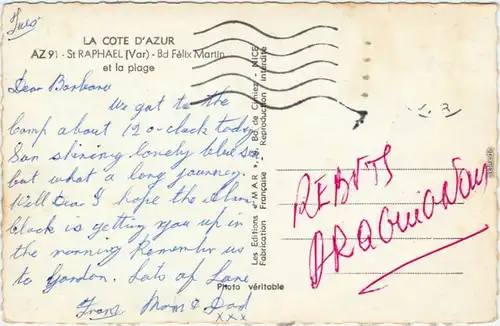 LA COTE D'AZUR
AZ 91 - St RAPHAEL (Var) - Bd Félix Martin
et la plage
Dear Barbara
We got to the
camp about 12 o-clock today
Sun shining lovely blue sea
but what a long journey.
Well Dear I hope the Alarm
clock is getting you up in
the morning Remember us
to Gordon. Lots of Love
From Mom & Dad
xxx
Photo véritable
Les Editions "MAR", Bd de Cimiez - NICE
Fabrication Française - Reproduction interdite
REBUTS
DRAGUIGNAN